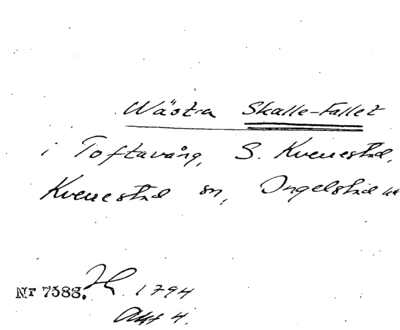 Wästra Skalle-Fallet
i Toftavång, S. Kvenestad,
Kvenestad sn, Ingelstad hd
Nr 7588. H. 1794
Akt 4.